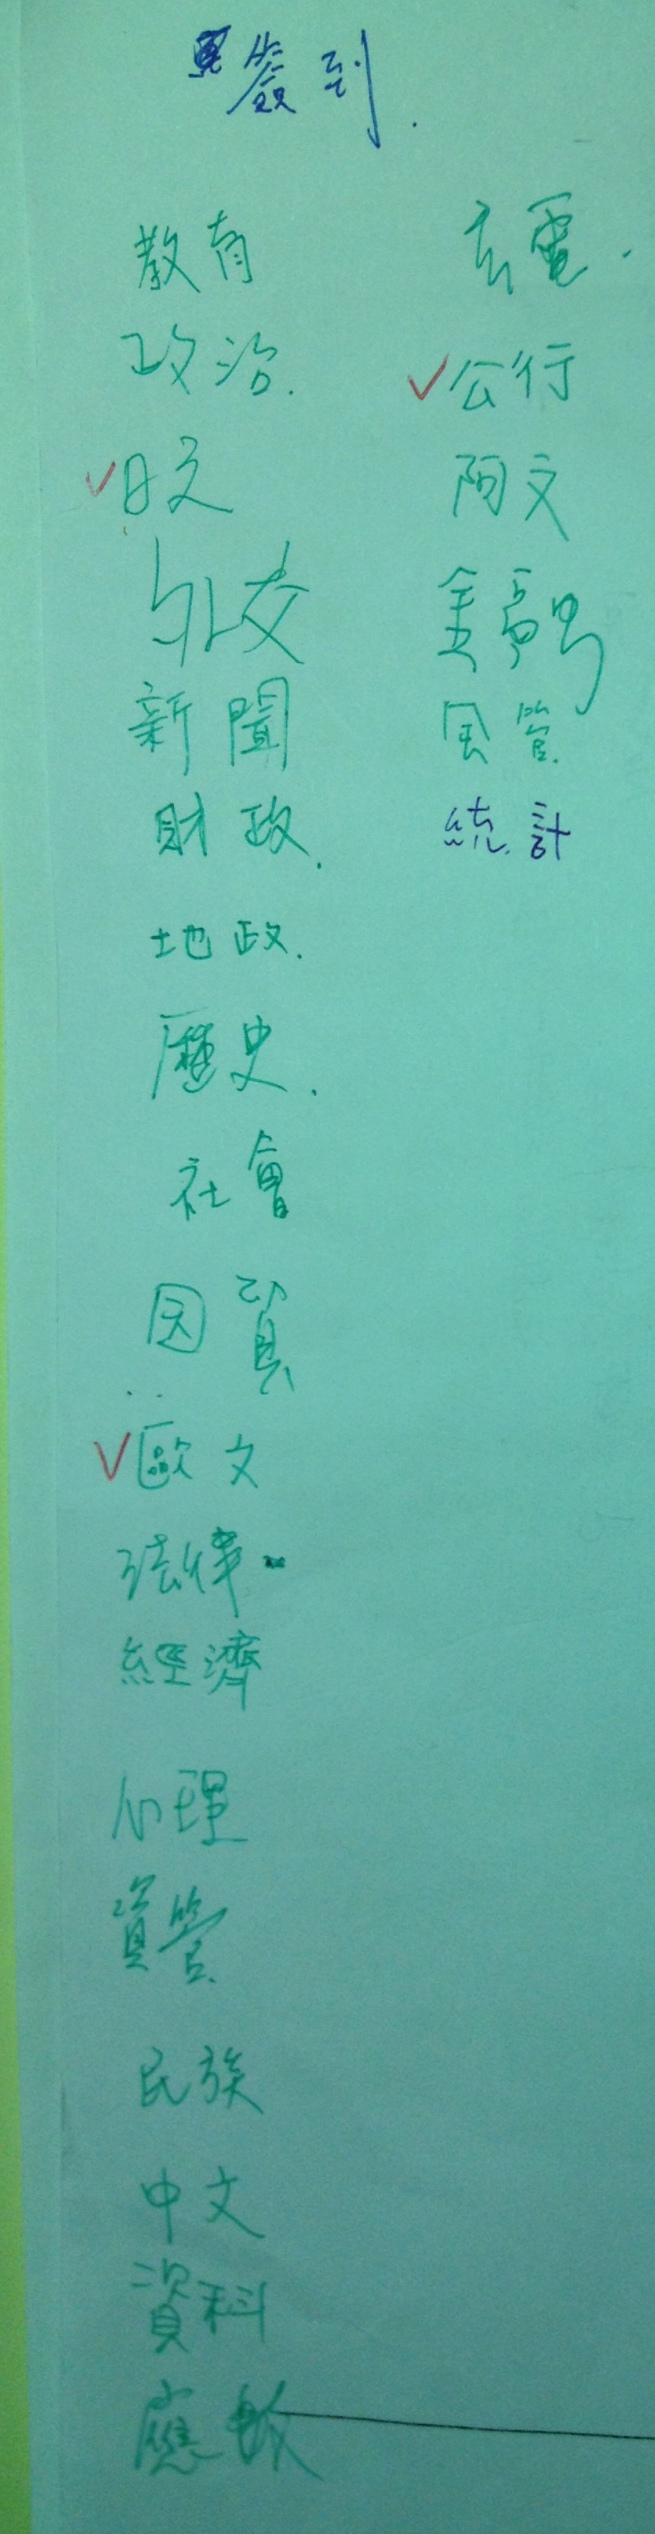 簽到.
教育
政治.
✓日文
外交
新聞
財政.
地政.
歷史.
社會
国貿
✓歐文
法律
經濟
心理
資管
民族
中文
資科
應數
広電.
✓公行
阿文
金融
風管
統計